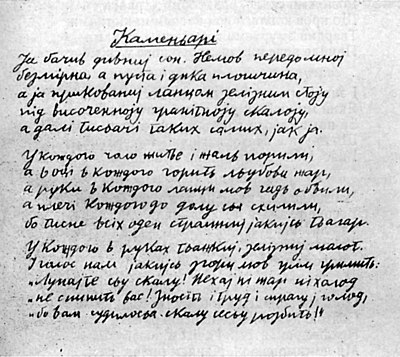 Каменьарі
Ја бачив дивниј сон. Немов передомноју
безмірна, а пуста і дика площина,
а ја прикованиј ланцом зелізним стоју
під височенноју гранітноју скалоју,
а далі тисьачі таких самих, јак ја.
У кождого чоло житьє і жаль порили,
а в очі в кождого горить льубови жар,
а руки в кождого ланци мов гадь обвили,
а плечі кождого до долу сьа схилили,
бо тисне всіх оден страшниј јакијсь тьагар.
У кождого в руках тьажкиј, зелізниј молот.
І голос нам јакијсь згори мов грім гримить:
„Лупајте сьу скалу! Нехај ні жар ні холод
„не спинить вас! Зносіть і труд і спрагу ј голод,
„бо вам судилосьа скалу сесьу розбить!“